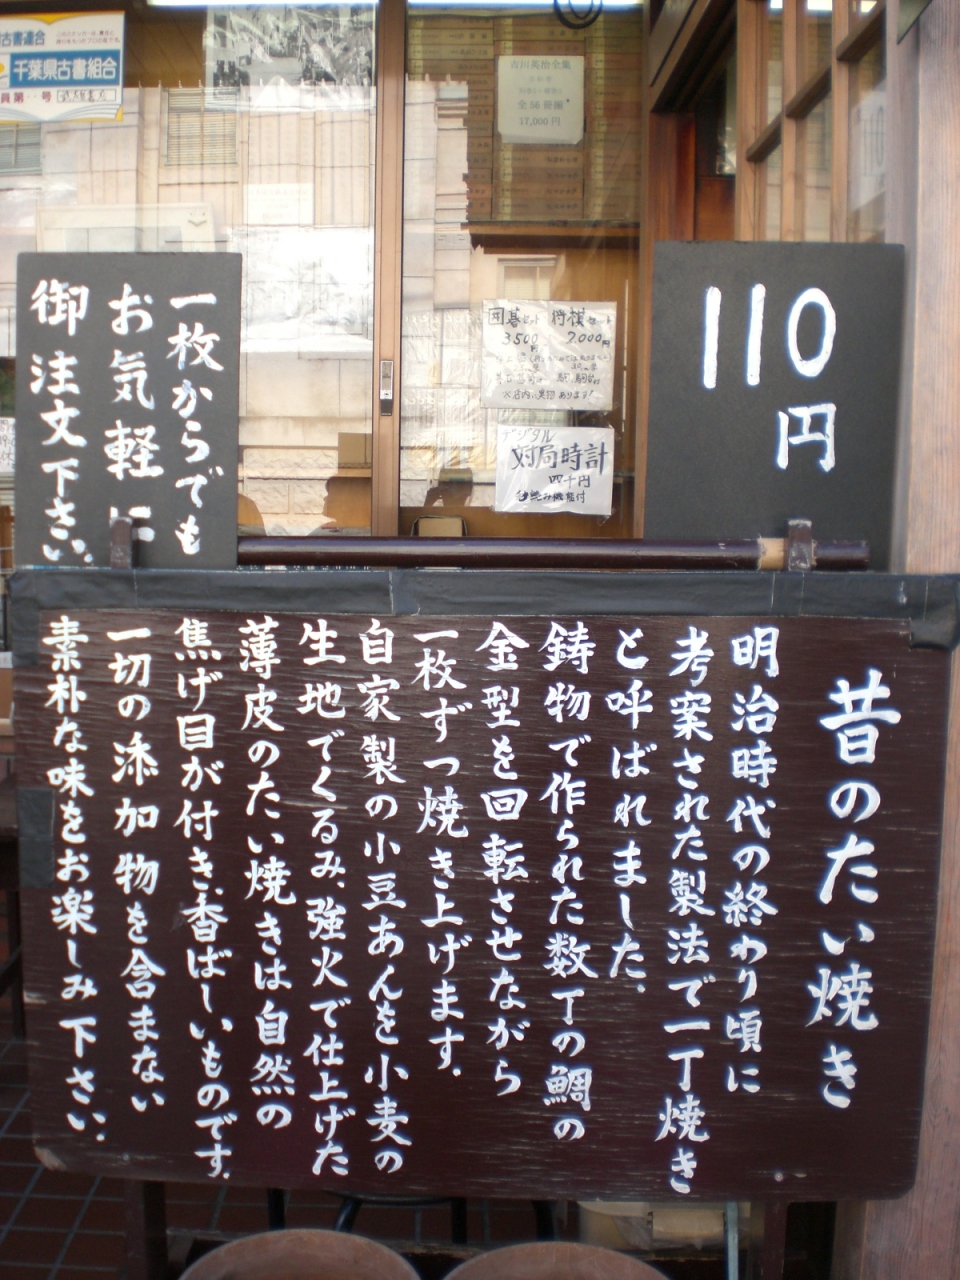 千葉県古書組合
吉川英治全集
全56冊揃
17,000円
一枚からでも
お気軽に
御注文下さい。
囲碁セット 将棋セット
3500円 7,000円
※店内に見本あります!
デジタル
対局時計
四千円
秒読み機能付
110
円
昔のたい焼き
明治時代の終わり頃に
考案された製法で一丁焼き
と呼ばれました。
鋳物で作られた数丁の鯛の
金型を回転させながら
一枚ずつ焼き上げます。
自家製の小豆あんを小麦の
生地でくるみ、強火で仕上げた
薄皮のたい焼きは自然の
焦げ目が付き、香ばしいものです。
一切の添加物を含まない
素朴な味をお楽しみ下さい。